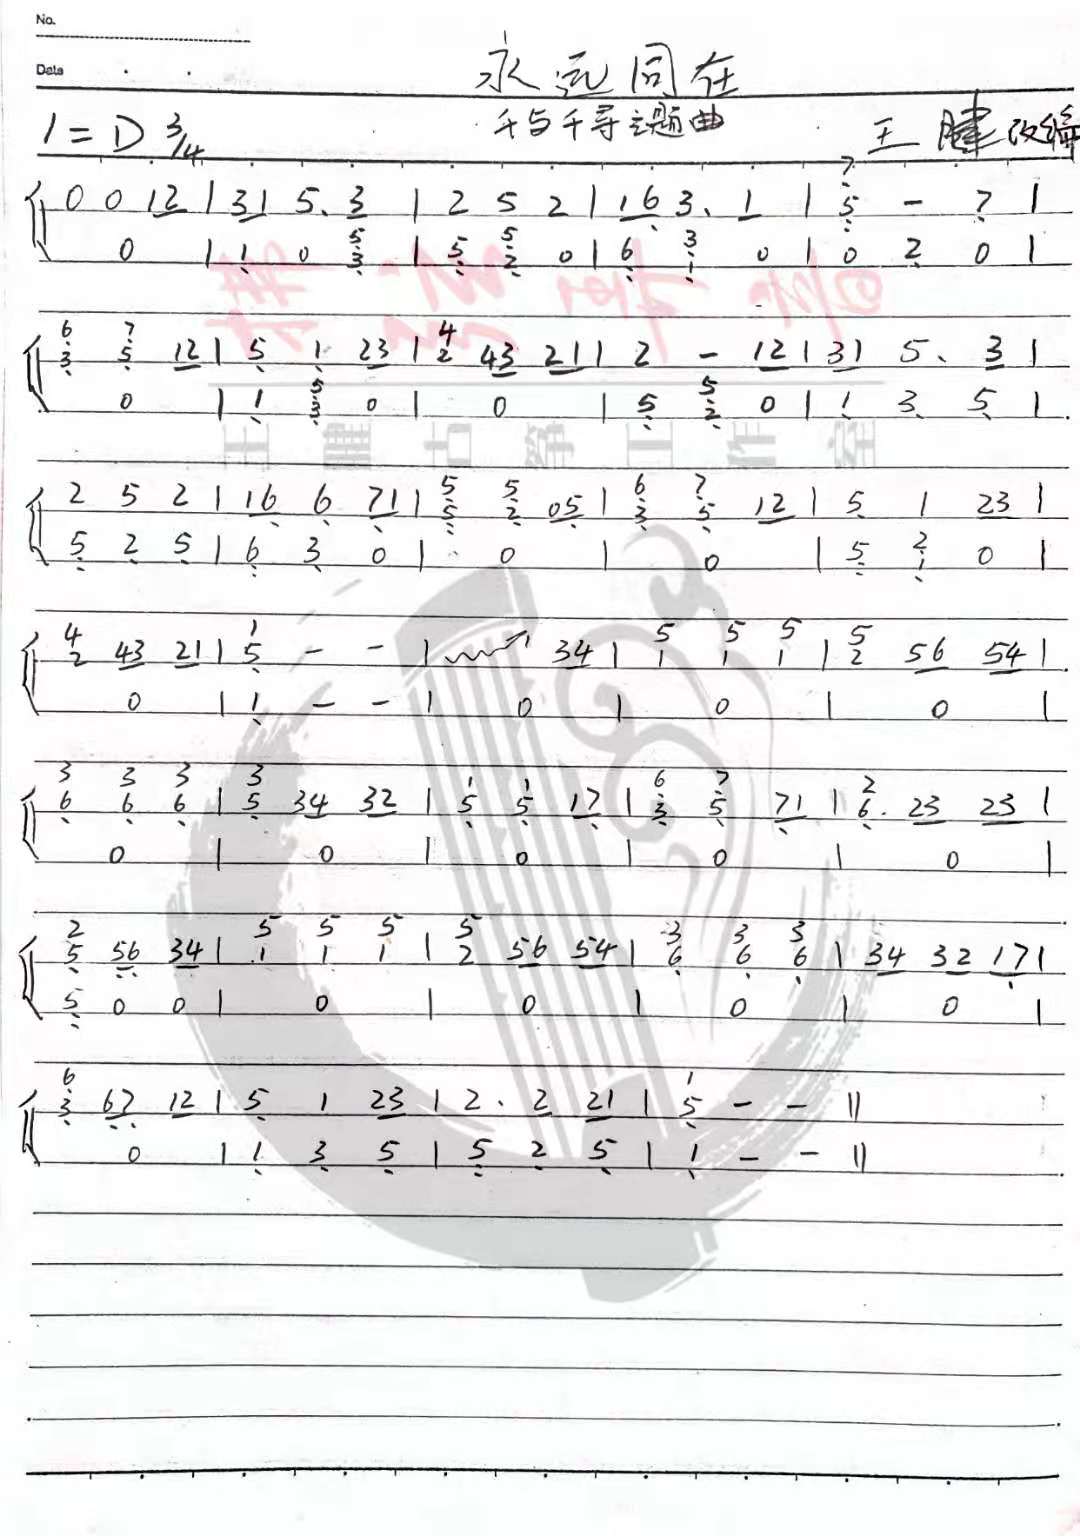 No.
Date
永远同在
千与千寻主题曲
1=D 3/4
王 改编
0 0 12 | 31 5. 3 | 2 5 2 | 16 3. 1 | 7 5 - 7 |
0 | 1 0 5 3 | 5 5 2 0 | 6 3 1 0 | 0 2 0 |
6 3 7 5 12 | 5 1 23 | 4 2 43 21 | 2 - 12 | 31 5. 3 |
0 | 1 5 3 0 | 0 | 5 5 2 0 | 1 3 5 |
2 5 2 | 16 6 71 | 5 5 5 2 05 | 6 3 7 5 12 | 5 1 23 |
5 2 5 | 6 3 0 | 0 | 0 | 5 2 1 0 |
4 2 43 21 | 1 5 - - | 34 | 5 1 5 1 5 1 | 5 2 56 54 |
0 | 1 - - | 0 | 0 | 0 |
3 6 3 6 3 6 | 3 5 34 32 | 1 5 1 5 17 | 6 3 7 5 71 | 2 6. 23 23 |
0 | 0 | 0 | 0 | 0 |
2 5 56 34 | 5 1 5 1 5 1 | 5 2 56 54 | 3 6 3 6 3 6 | 34 32 17 |
5 0 0 | 0 | 0 | 0 | 0 |
6 3 67 12 | 5 1 23 | 2. 2 21 | 1 5 - - ||
0 | 1 3 5 | 5 2 5 | 1 - - ||